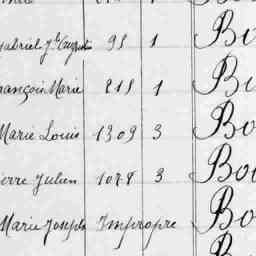 Gabriel Jh August 95 1 Bo
François Marie 215 1 Bo
Marie Louis 1309 3 Bo
ierre Julien 1078 3 Bou
Marie Joseph Impropre Bo